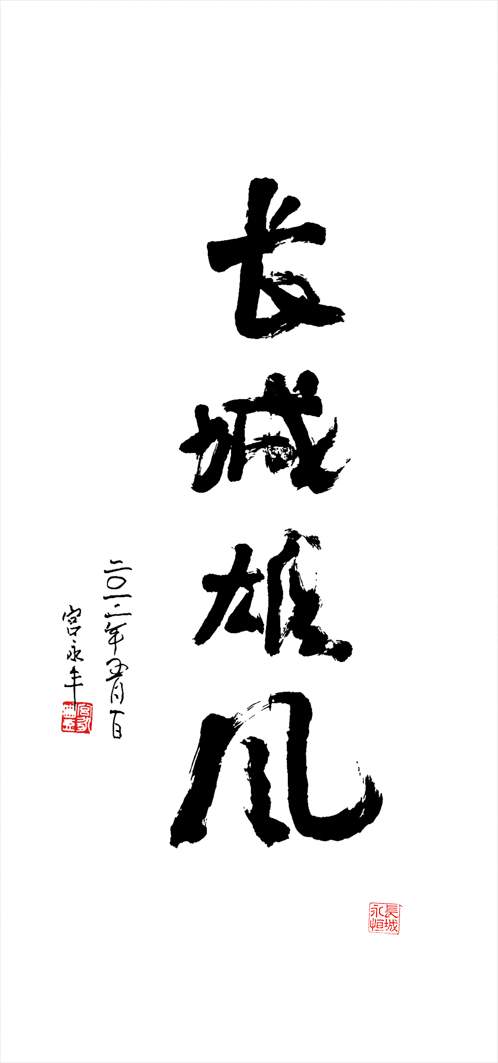 长城雄风
二〇一二年五月一日
宫永丰
長城永恒